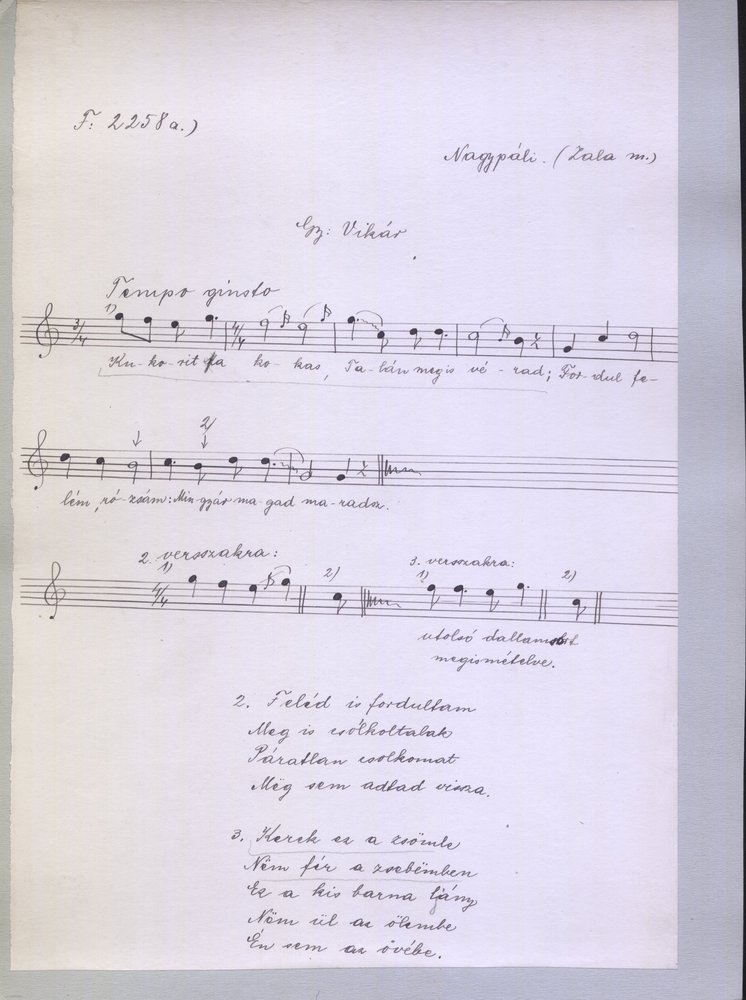 F: 2258a.)
Nagypáli. (Zala m.)
Gy: Vikár
Tempo giusto
1)
3/4 4/4
Ku-ko-rit a ko-kas, Ta-lán megis vé-rad; For-dul fe-
2)
lém, ró-zsám: Min-gyár ma-gad ma-radsz.
2. versszakra:
3. versszakra:
1) 2) 1) 2)
4/4
utolsó dallamsort
megismételve.
2. Feléd is fordultam
Meg is csólkoltalak
Páratlan csolkomat
Még sem adtad vissza.
3. Kerek ez a zsömle
Nëm fér a zsebëmben
Ez a kis barna lány
Nëm ül az ölembe
Én sem az övébe.